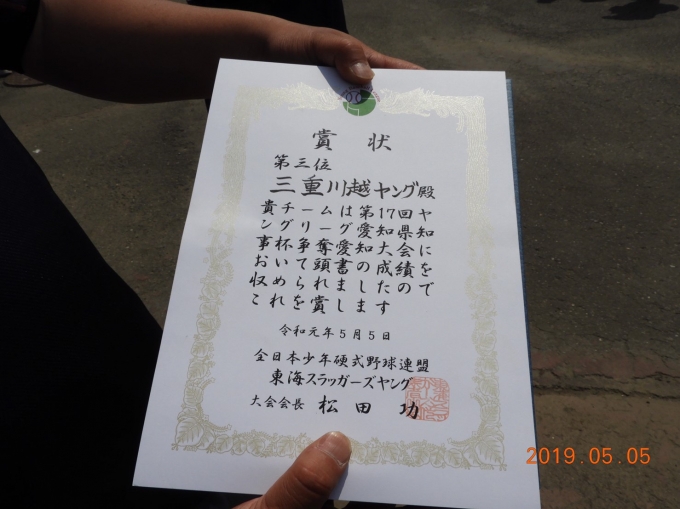 賞状
第三位
三重川越ヤング殿
貴チームは第17回ヤ
ングリーグ愛知県知
事杯争奪愛知大会に
おいて頭書の成績を
収められましたので
これを賞します
令和元年5月5日
全日本少年硬式野球連盟
東海スラッガーズヤング
大会会長 松田 功
2019.05.05